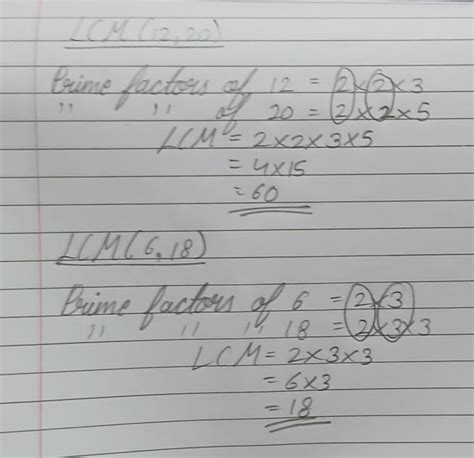 LCM(12,20)
Prime factors of 12 = 2×2×3
" " of 20 = 2×2×5
LCM = 2×2×3×5
= 4×15
= 60
LCM(6,18)
Prime factors of 6 = 2×3
" " " 18 = 2×3×3
LCM = 2×3×3
= 6×3
= 18